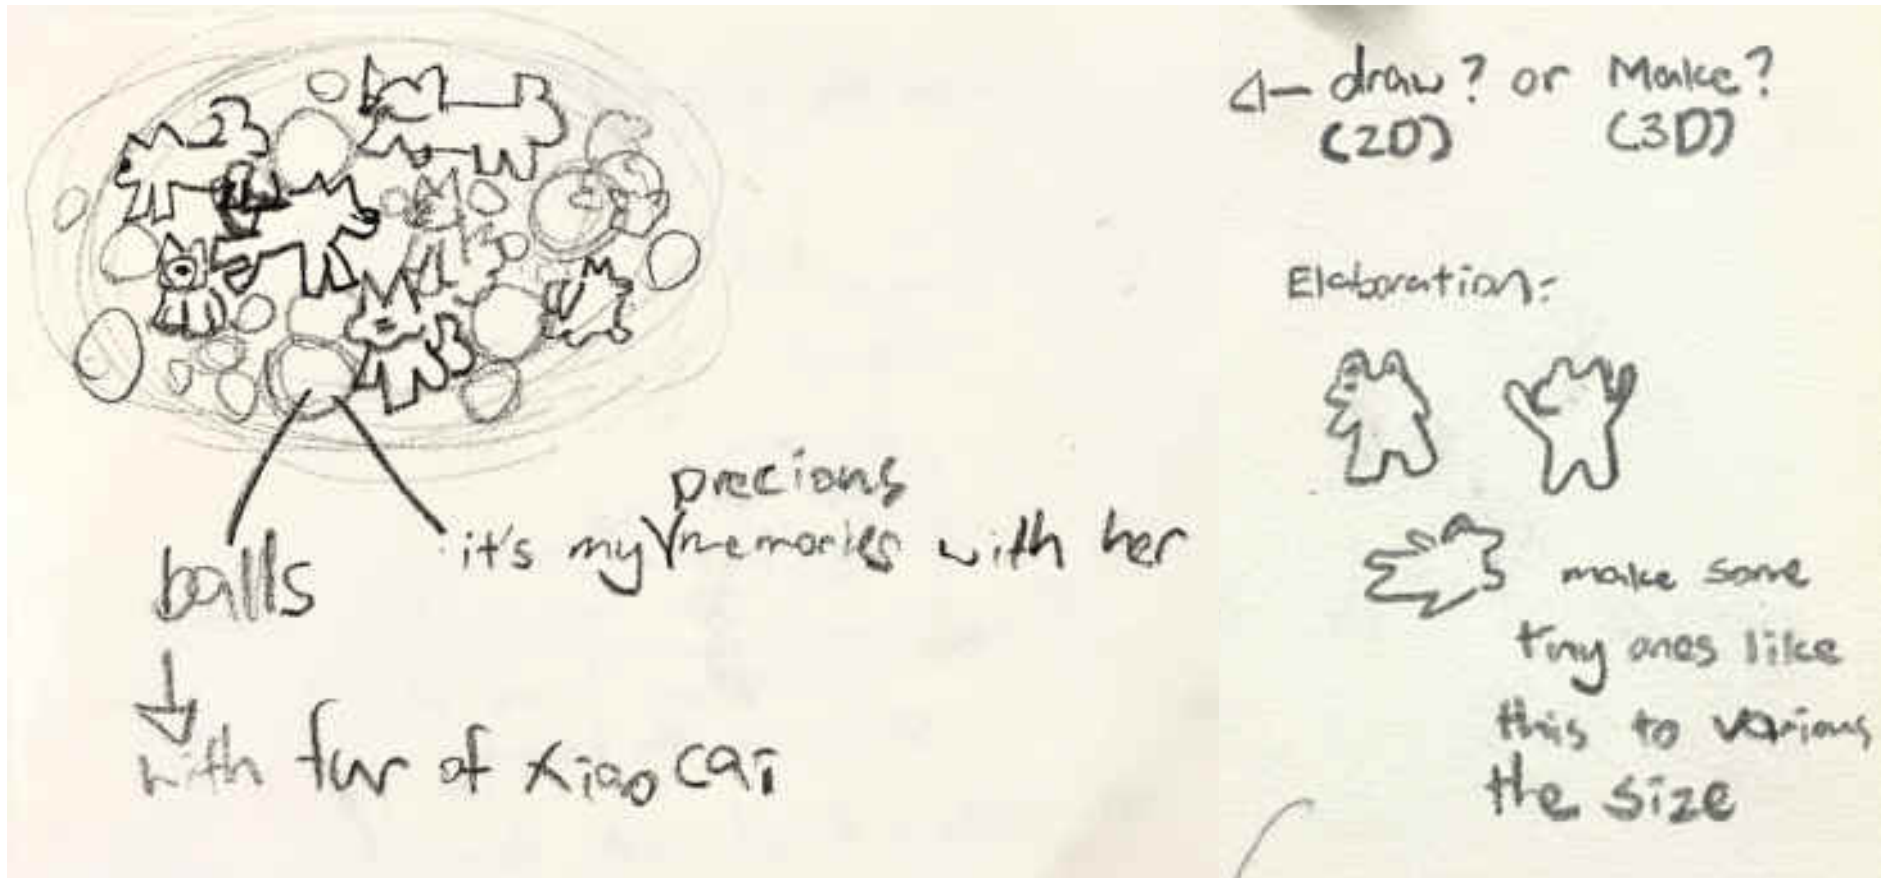 precious
it's my memories with her
balls
with fur of xiao cai
draw? or Make?
(2D) (3D)
Elaboration:
make some
tiny ones like
this to various
the size